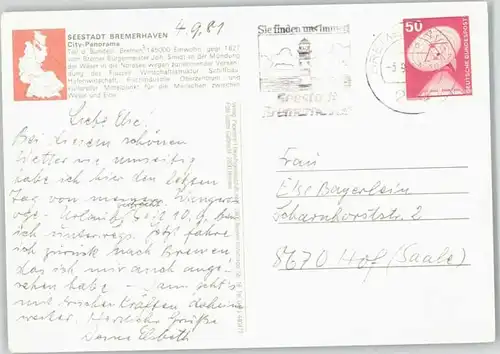 4.9.81
SEESTADT BREMERHAVEN
City-Panorama
Teil d. Bundesl. Bremen, 145000 Einwohn., gegr. 1827
vom Bremer Bürgermeister Joh. Smidt an der Mündung
der Weser in die Nordsee wegen zunehmender Versan-
dung des Flusses. Wirtschaftsstruktur: Schiffbau,
Hafenwirtschaft, Fischindustrie. Oberzentrum und
kultureller Mittelpunkt für die Menschen zwischen
Weser und Elbe.
Liebe Eke!
Bei diesem schönen
Wetter wie umseitig
habe ich hier den letzten
Tag von meinem Wangero-
oge-Urlaub. Seit 10.8. bin
ich unterwegs. Jetzt fahre
ich zurück nach Bremen,
das ich mir auch ange-
sehen habe - dann geht's
mit frischen Kräften daheim
weiter. Herzliche Grüße
Deine Elsbeth
Sie finden uns immer
Seestadt
Bremerhaven
50
DEUTSCHE BUNDESPOST
Frau
Eke Bayerlein
Scharnhorststr. 2
8670 Hof (Saale)